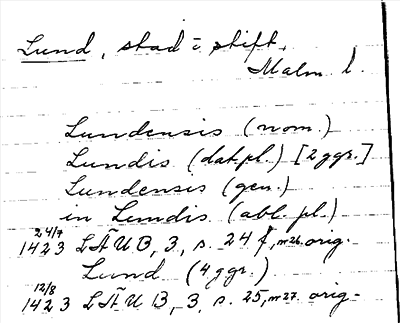 Lund, stad i stift,
Malm. l.
Lundensis (nom.)
Lundis (dat. pl.) [2 ggr.]
Lundensis (gen.)
in Lundis (abl. pl.)
24/7
1423 LÄUB, 3, s. 24 f, nr 26. orig.
Lund (4 ggr.)
12/8
1423 LÄUB, 3, s. 25, nr 27. orig.